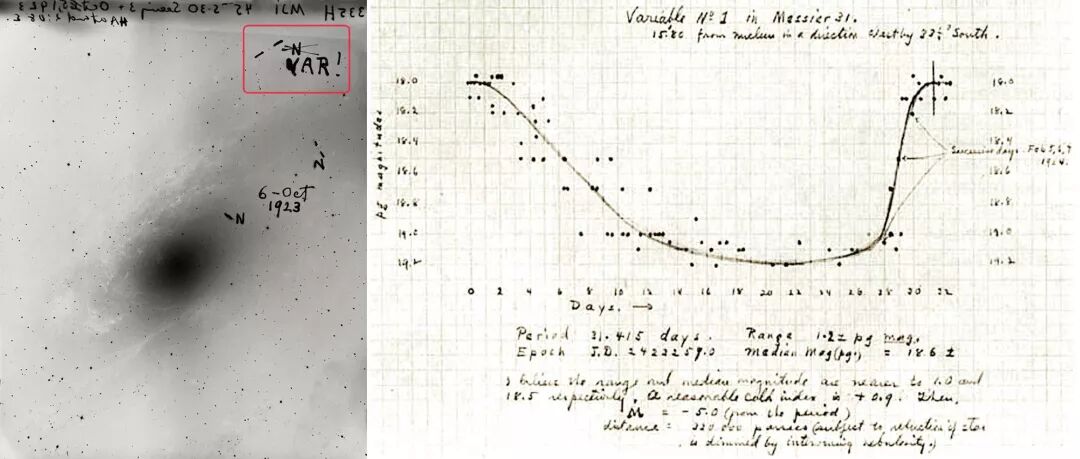 H335H Seeing 3+
N
VAR!
N
6-Oct
1923
N
Variable No 1 in Messier 31.
from nucleus in a direction West by South.
pg magnitudes
18.0
18.2
18.4
18.6
18.8
19.0
19.2
18.0
18.2
18.4
18.6
18.8
19.0
19.2
Successive days. Feb 5, 6, 7
1924.
0 2 4 6 8 10 12 14 16 18 20 22 24 26 28 30 32
Days. →
Period 31.415 days. Range 1.2± pg mag.
Epoch J.D. 2423259.0 Median Mag (pg.) = 18.6 ±
I believe the range and median magnitude are nearer to 1.0 and
18.5 respectively. A reasonable color index is +0.9. Then,
M = -5.0 (from the period)
distance = parsecs (subject to reduction if star
is dimmed by intervening nebulosity.)